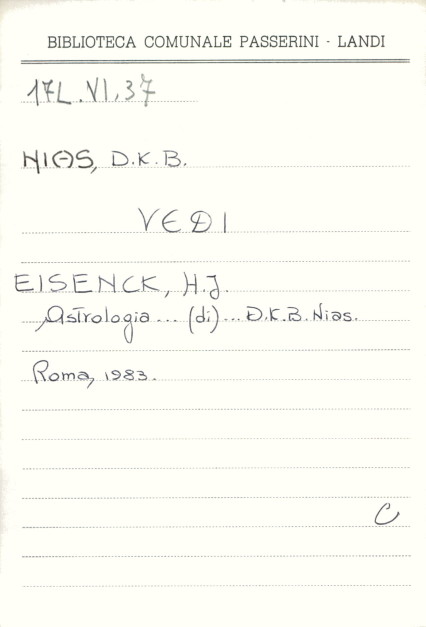 BIBLIOTECA COMUNALE PASSERINI - LANDI
17L.VI.37
NIAS, D.K.B.
VEDI
EISENCK, H.J.
Astrologia... (di)... D.K.B. Nias.
Roma, 1983.
C